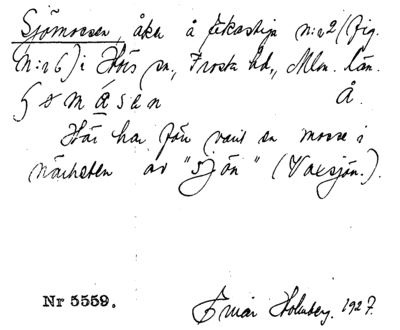 Sjömossen, åker å Lekastiga n:r 2 (fig.
n:r 6) i Hörs sn, Frosta hd, Mlm. län.
Å.
Här har förr varit en mosse i
närheten av "sjön" (Vaxsjön.).
Nr 5559. Ejnar Holmberg. 1927.